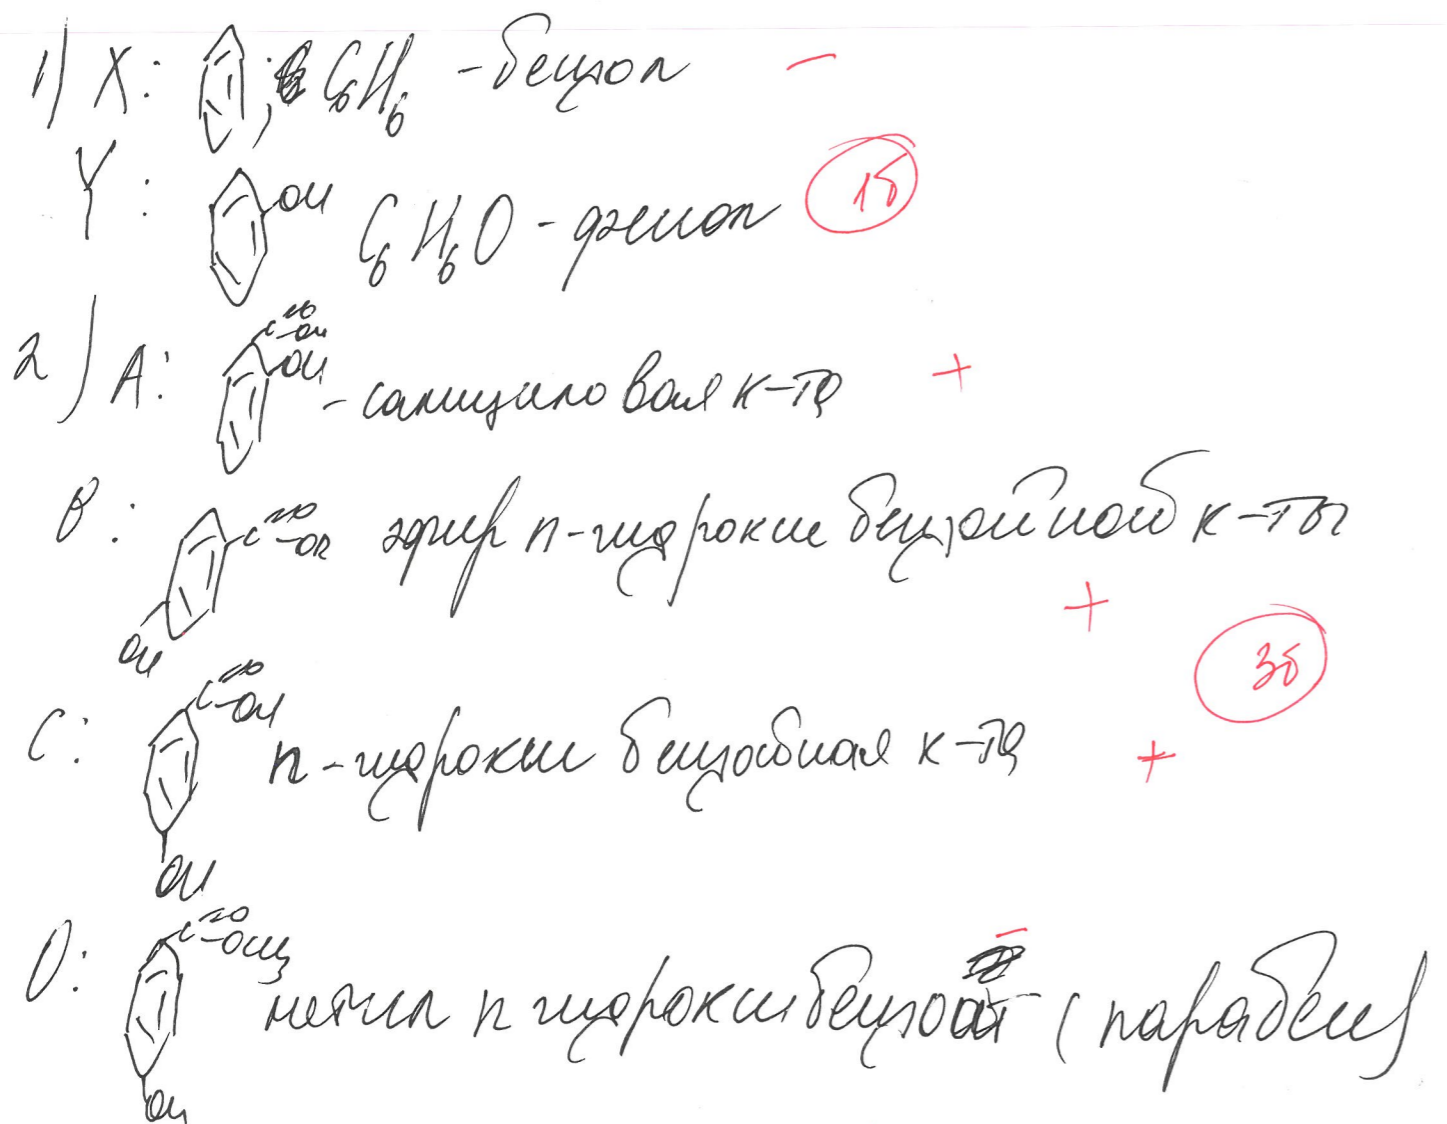 1) X: C₆H₆ - бензол −
Y: OH C₆H₆O - фенол 1б
2) A: C=O -OH OH - салициловая к-та +
B: C=O -OR OH эфир п-гидроксибензойной к-ты +
3б
C: C=O -OH OH п-гидроксибензойная к-та +
D: C=O -OCH₃ OH метил п гидроксибензоат (парабен) −